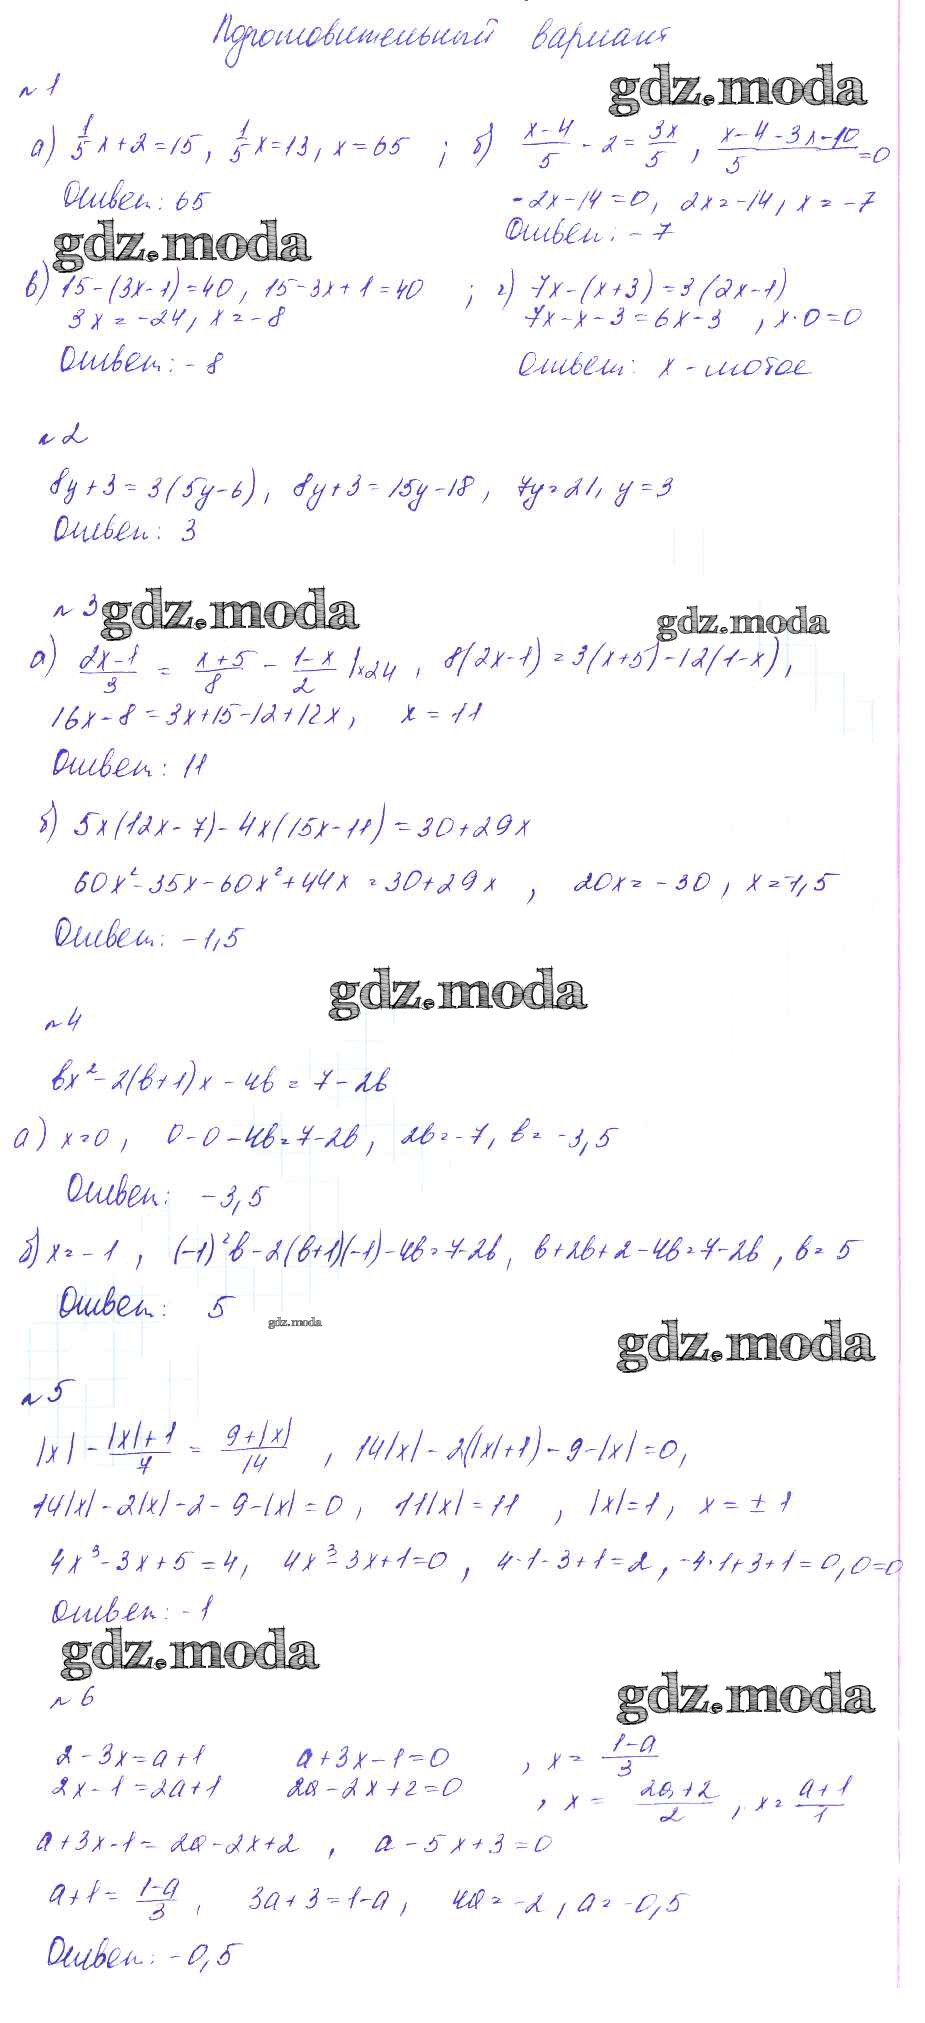 Подготовительный вариант
№1
gdz.moda
а) 1/5 x + 2 = 15, 1/5 x = 13, x = 65 ; б) (x-4)/5 - 2 = 3x/5, (x-4-3x-10)/5 = 0
Ответ: 65
-2x-14=0, 2x=-14, x=-7
Ответ: -7
gdz.moda
в) 15-(3x-1)=40, 15-3x+1=40 ; г) 7x-(x+3)=3(2x-1)
3x=-24, x=-8
7x-x-3=6x-3, x·0=0
Ответ: -8
Ответ: x - любое
№2
8y+3=3(5y-6), 8y+3=15y-18, 7y=21, y=3
Ответ: 3
№3
gdz.moda
gdz.moda
а) (2x-1)/3 = (x+5)/8 - (1-x)/2 |×24, 8(2x-1)=3(x+5)-12(1-x),
16x-8=3x+15-12+12x, x=11
Ответ: 11
б) 5x(12x-7)-4x(15x-11)=30+29x
60x²-35x-60x²+44x=30+29x, 20x=-30, x=-1,5
Ответ: -1,5
gdz.moda
№4
bx²-2(b+1)x-4b=7-2b
а) x=0, 0-0-4b=7-2b, 2b=-7, b=-3,5
Ответ: -3,5
б) x=-1, (-1)²b-2(b+1)(-1)-4b=7-2b, b+2b+2-4b=7-2b, b=5
Ответ: 5
gdz.moda
gdz.moda
№5
|x| - (|x|+1)/7 = (9+|x|)/14, 14|x|-2(|x|+1)-9-|x|=0,
14|x|-2|x|-2-9-|x|=0, 11|x|=11, |x|=1, x=±1
4x³-3x+5=4, 4x³-3x+1=0, 4·1-3+1=2, -4·1+3+1=0, 0=0
Ответ: -1
gdz.moda
№6
gdz.moda
2-3x=a+1 a+3x-1=0, x=(1-a)/3
2x-1=2a+1 2a-2x+2=0, x=(2a+2)/2, x=(a+1)/1
a+3x-1=2a-2x+2, a-5x+3=0
a+1=(1-a)/3, 3a+3=1-a, 4a=-2, a=-0,5
Ответ: -0,5